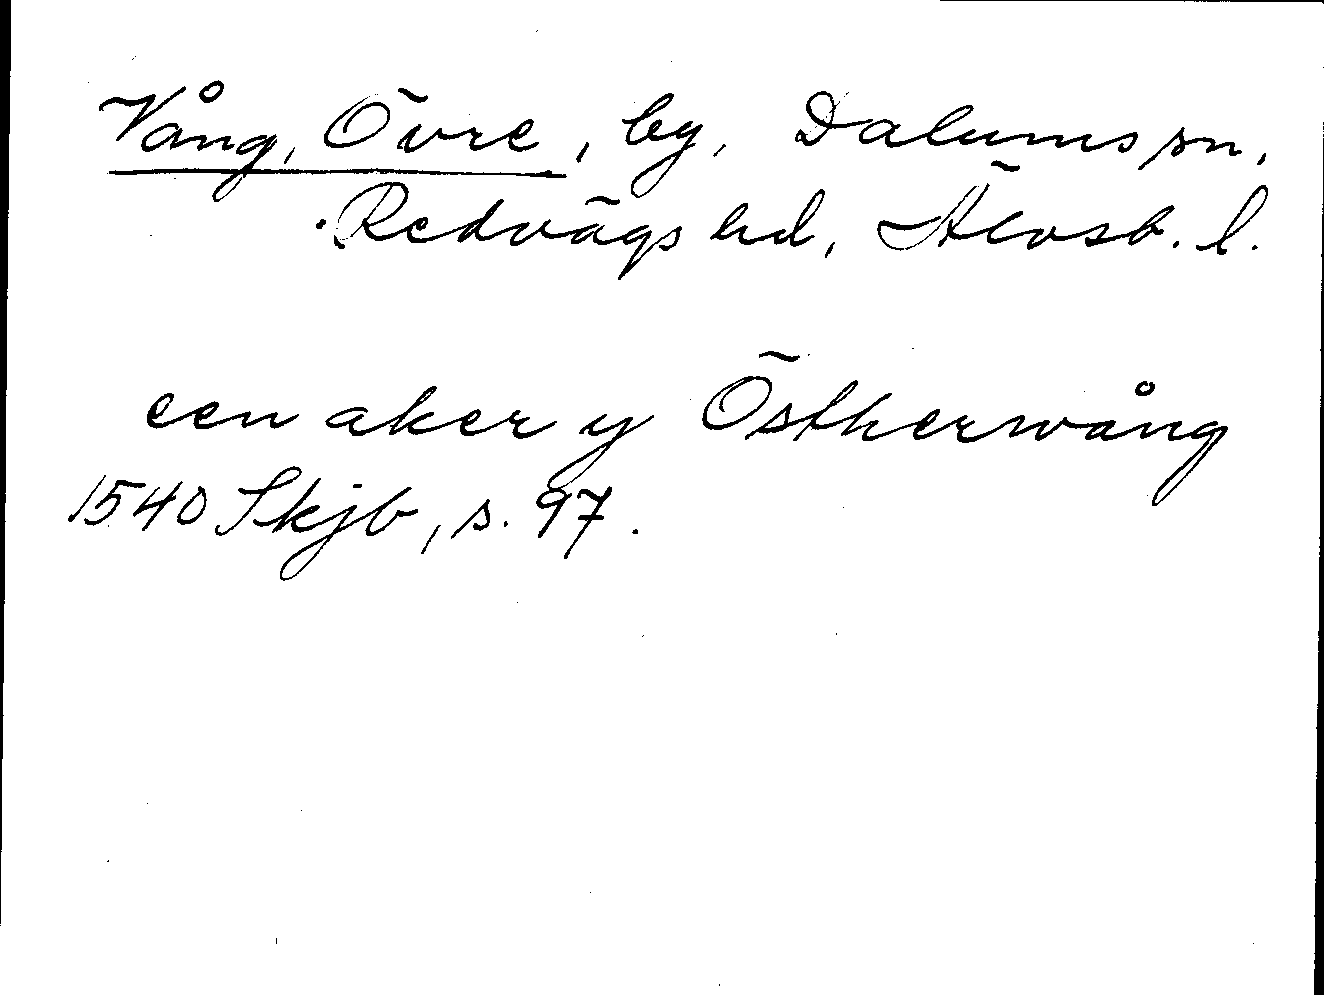 Vång, Övre, by, Dalums sn,
Redvägs hd, Älvsb. l.
een aker y Östherwång
1540 Skjb, s. 97.